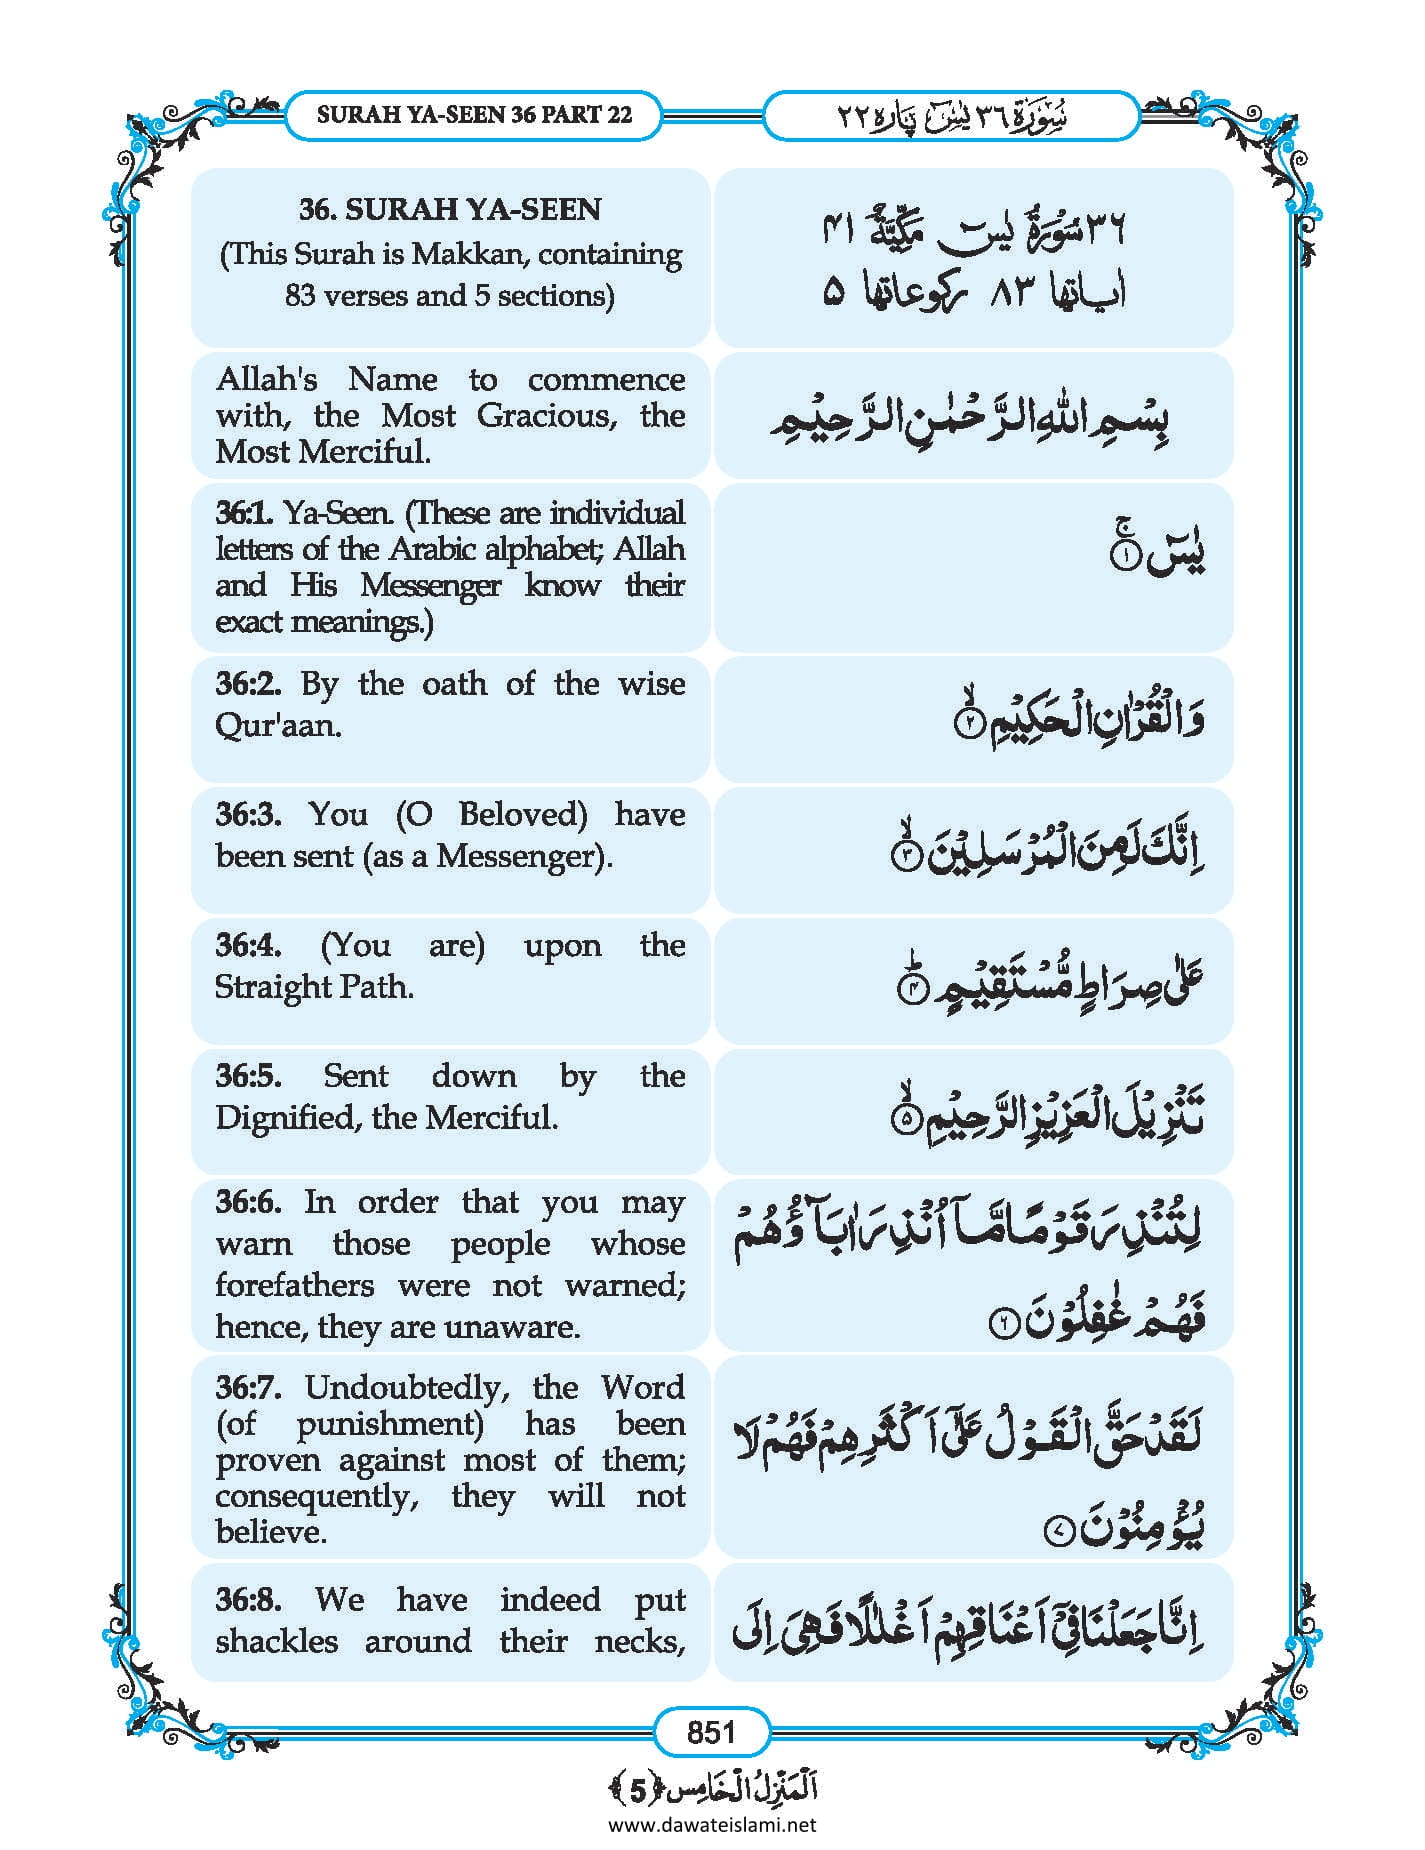 SURAH YA-SEEN 36 PART 22
سُوْرَة ٣٦ يٰسٓ پاره ٢٢
36. SURAH YA-SEEN
(This Surah is Makkan, containing
83 verses and 5 sections)
٣٦ سُوْرَةُ يٰسٓ مَكِّيَّةٌ ۴۱
اٰیاتها ٨٣ رکوعاتها ۵
Allah's Name to commence
with, the Most Gracious, the
Most Merciful.
بِسْمِ اللّٰهِ الرَّحْمٰنِ الرَّحِيْمِ
36:1. Ya-Seen. (These are individual
letters of the Arabic alphabet; Allah
and His Messenger know their
exact meanings.)
يٰسٓ ۚ﴿۱﴾
36:2. By the oath of the wise
Qur'aan.
وَالْقُرْاٰنِ الْحَكِيْمِ ۙ﴿۲﴾
36:3. You (O Beloved) have
been sent (as a Messenger).
اِنَّكَ لَمِنَ الْمُرْسَلِيْنَ ۙ﴿۳﴾
36:4. (You are) upon the
Straight Path.
عَلٰى صِرَاطٍ مُّسْتَقِيْمٍ ؕ﴿۴﴾
36:5. Sent down by the
Dignified, the Merciful.
تَنْزِيْلَ الْعَزِيْزِ الرَّحِيْمِ ۙ﴿۵﴾
36:6. In order that you may
warn those people whose
forefathers were not warned;
hence, they are unaware.
لِتُنْذِرَ قَوْمًا مَّاۤ اُنْذِرَ اٰبَآؤُهُمْ
فَهُمْ غٰفِلُوْنَ ﴿۶﴾
36:7. Undoubtedly, the Word
(of punishment) has been
proven against most of them;
consequently, they will not
believe.
لَقَدْ حَقَّ الْقَوْلُ عَلٰۤى اَكْثَرِهِمْ فَهُمْ لَا
يُؤْمِنُوْنَ ﴿۷﴾
36:8. We have indeed put
shackles around their necks,
اِنَّا جَعَلْنَا فِيْۤ اَعْنَاقِهِمْ اَغْلٰلًا فَهِيَ اِلَى
851
اَلْمَنْزِلُ الْخَامِس ﴿5﴾
www.dawateislami.net